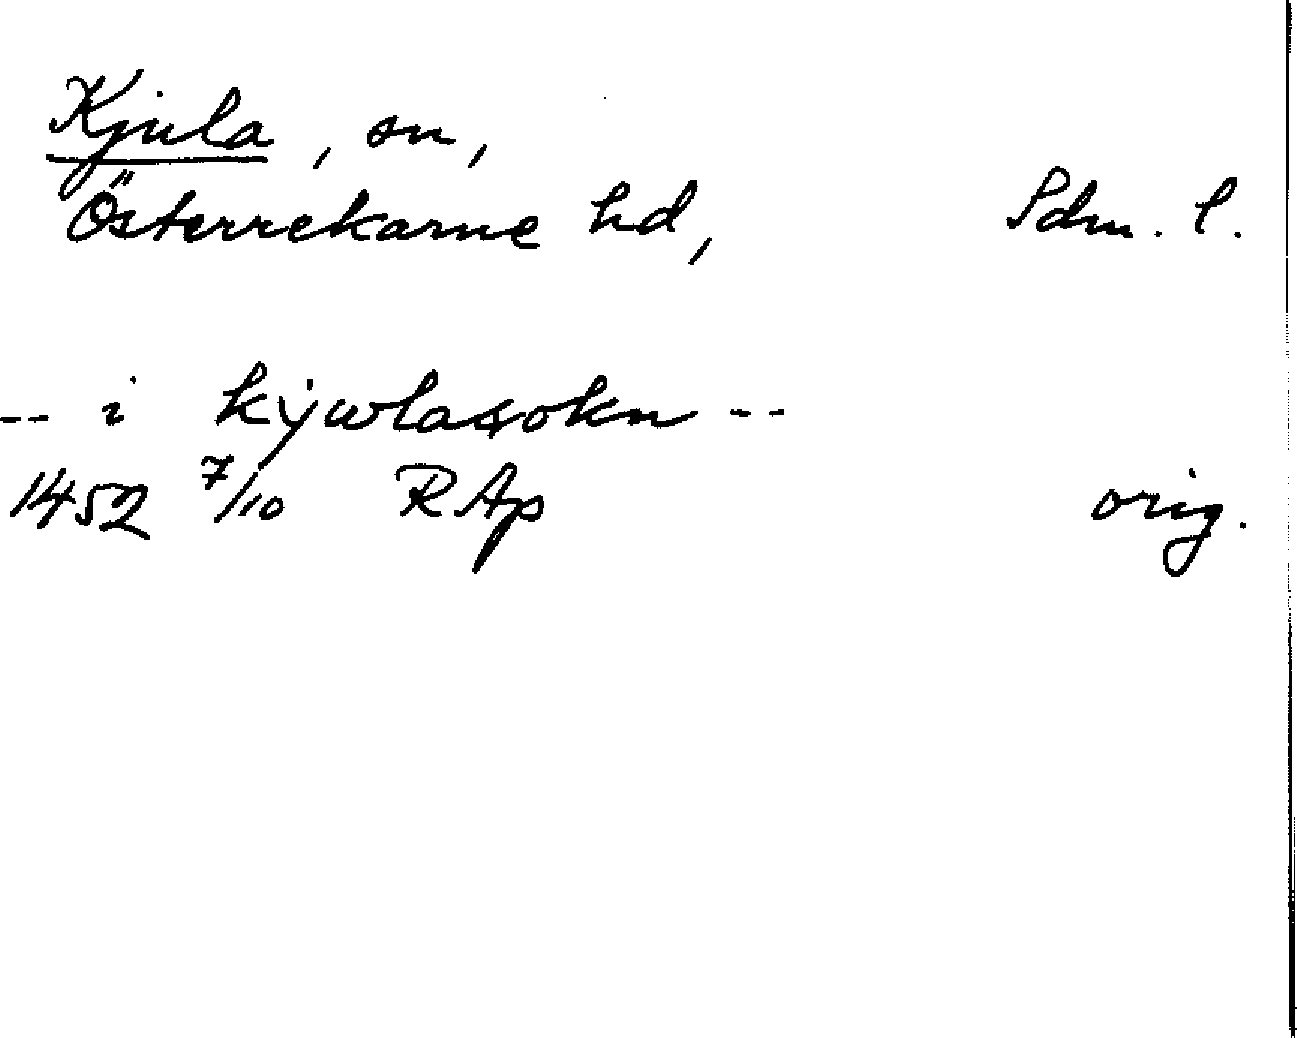 Kjula, sn,
Österrekarne hd, Sdm. l.
-- i kẏwlasokn --
1452 7/10 RAp orig.